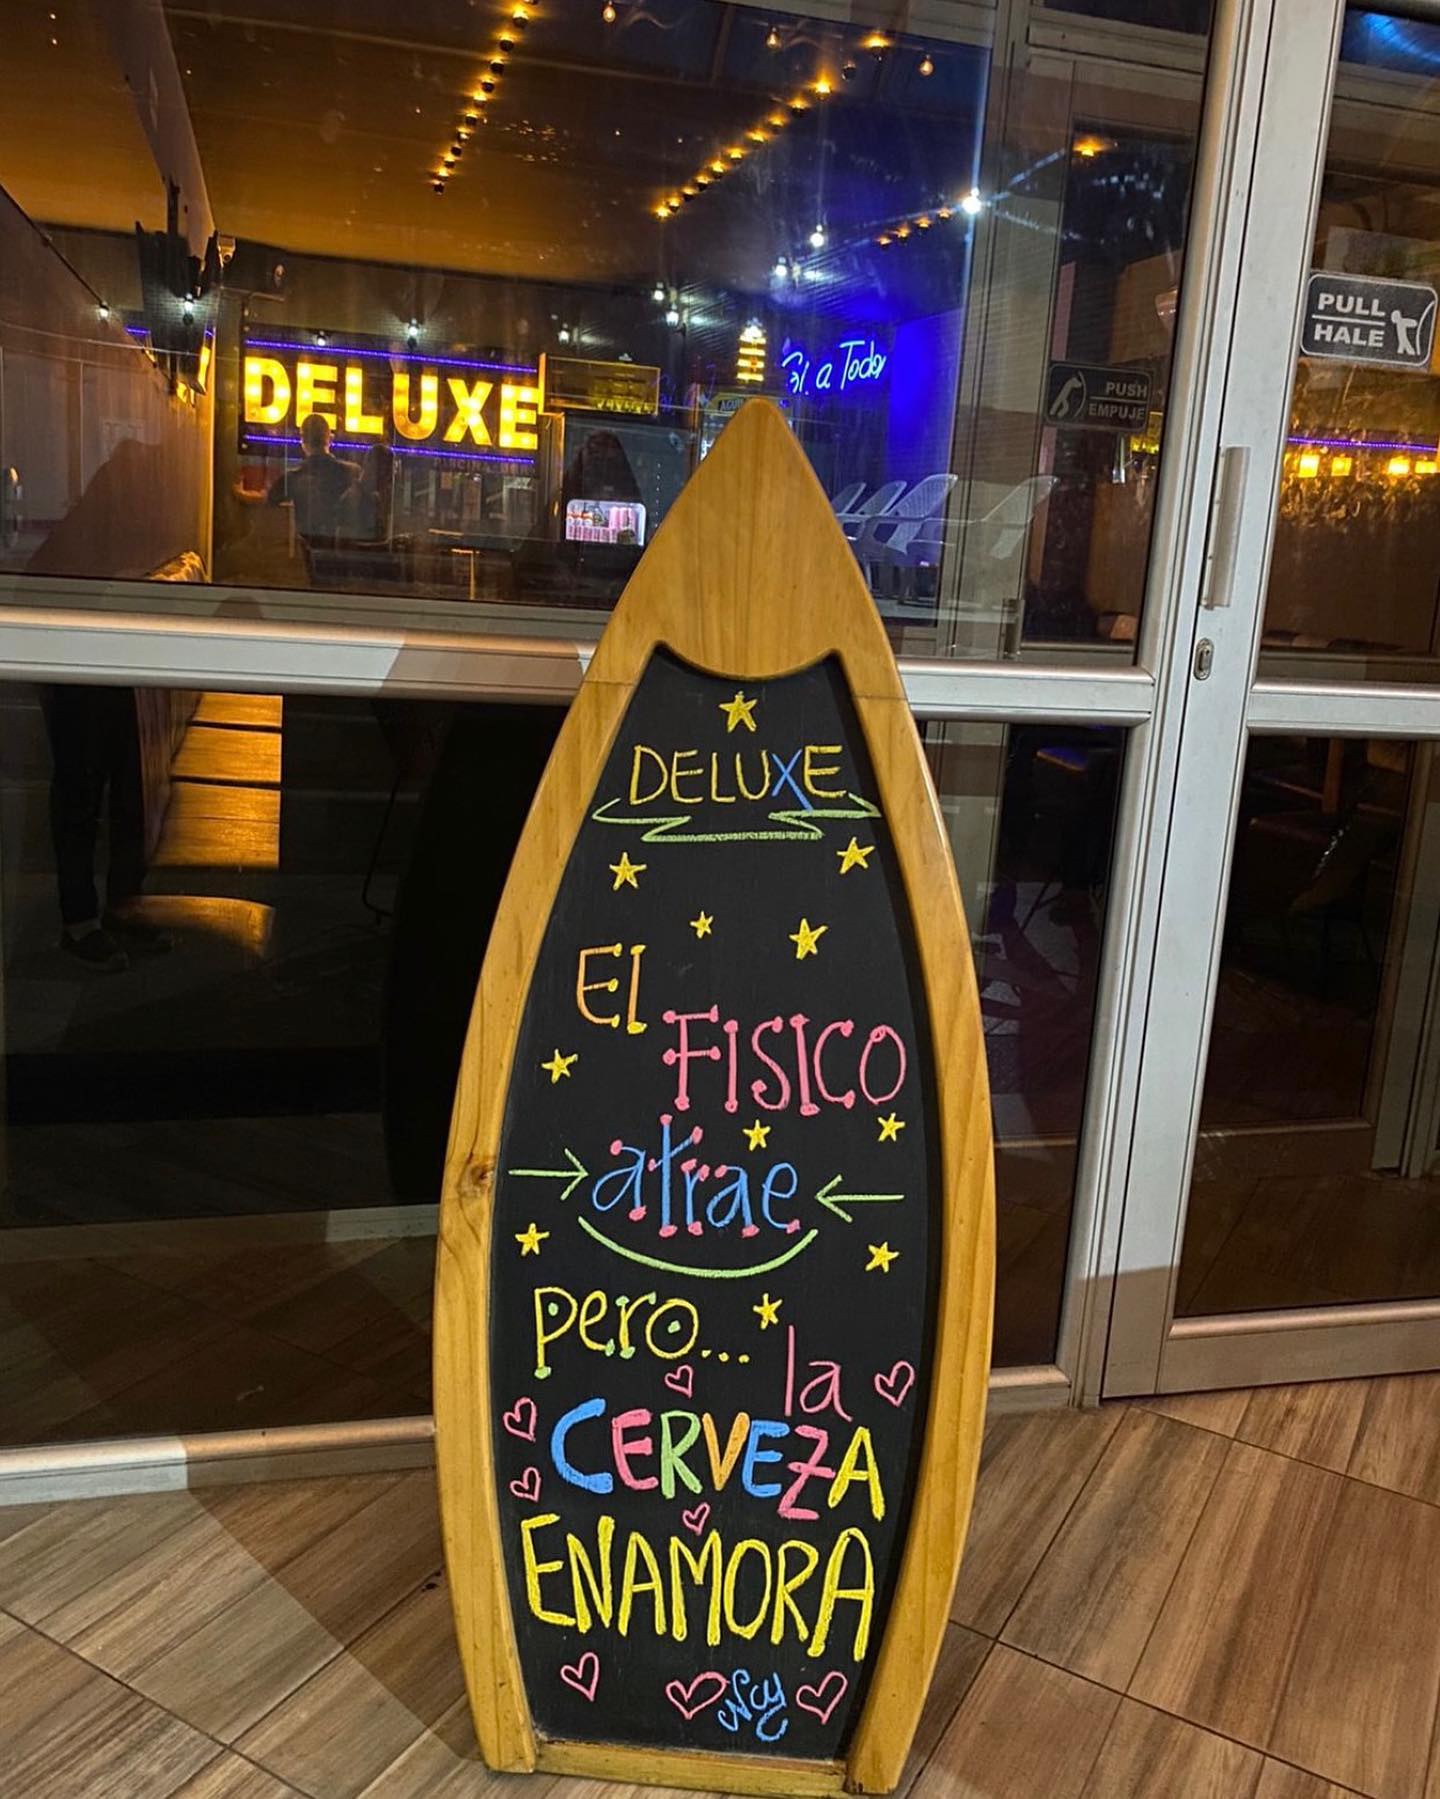 DELUXE
Sí a Todo
PUSH
EMPUJE
PULL
HALE
DELUXE
El
FISICO
atrae
pero...
la
CERVEZA
ENAMORA